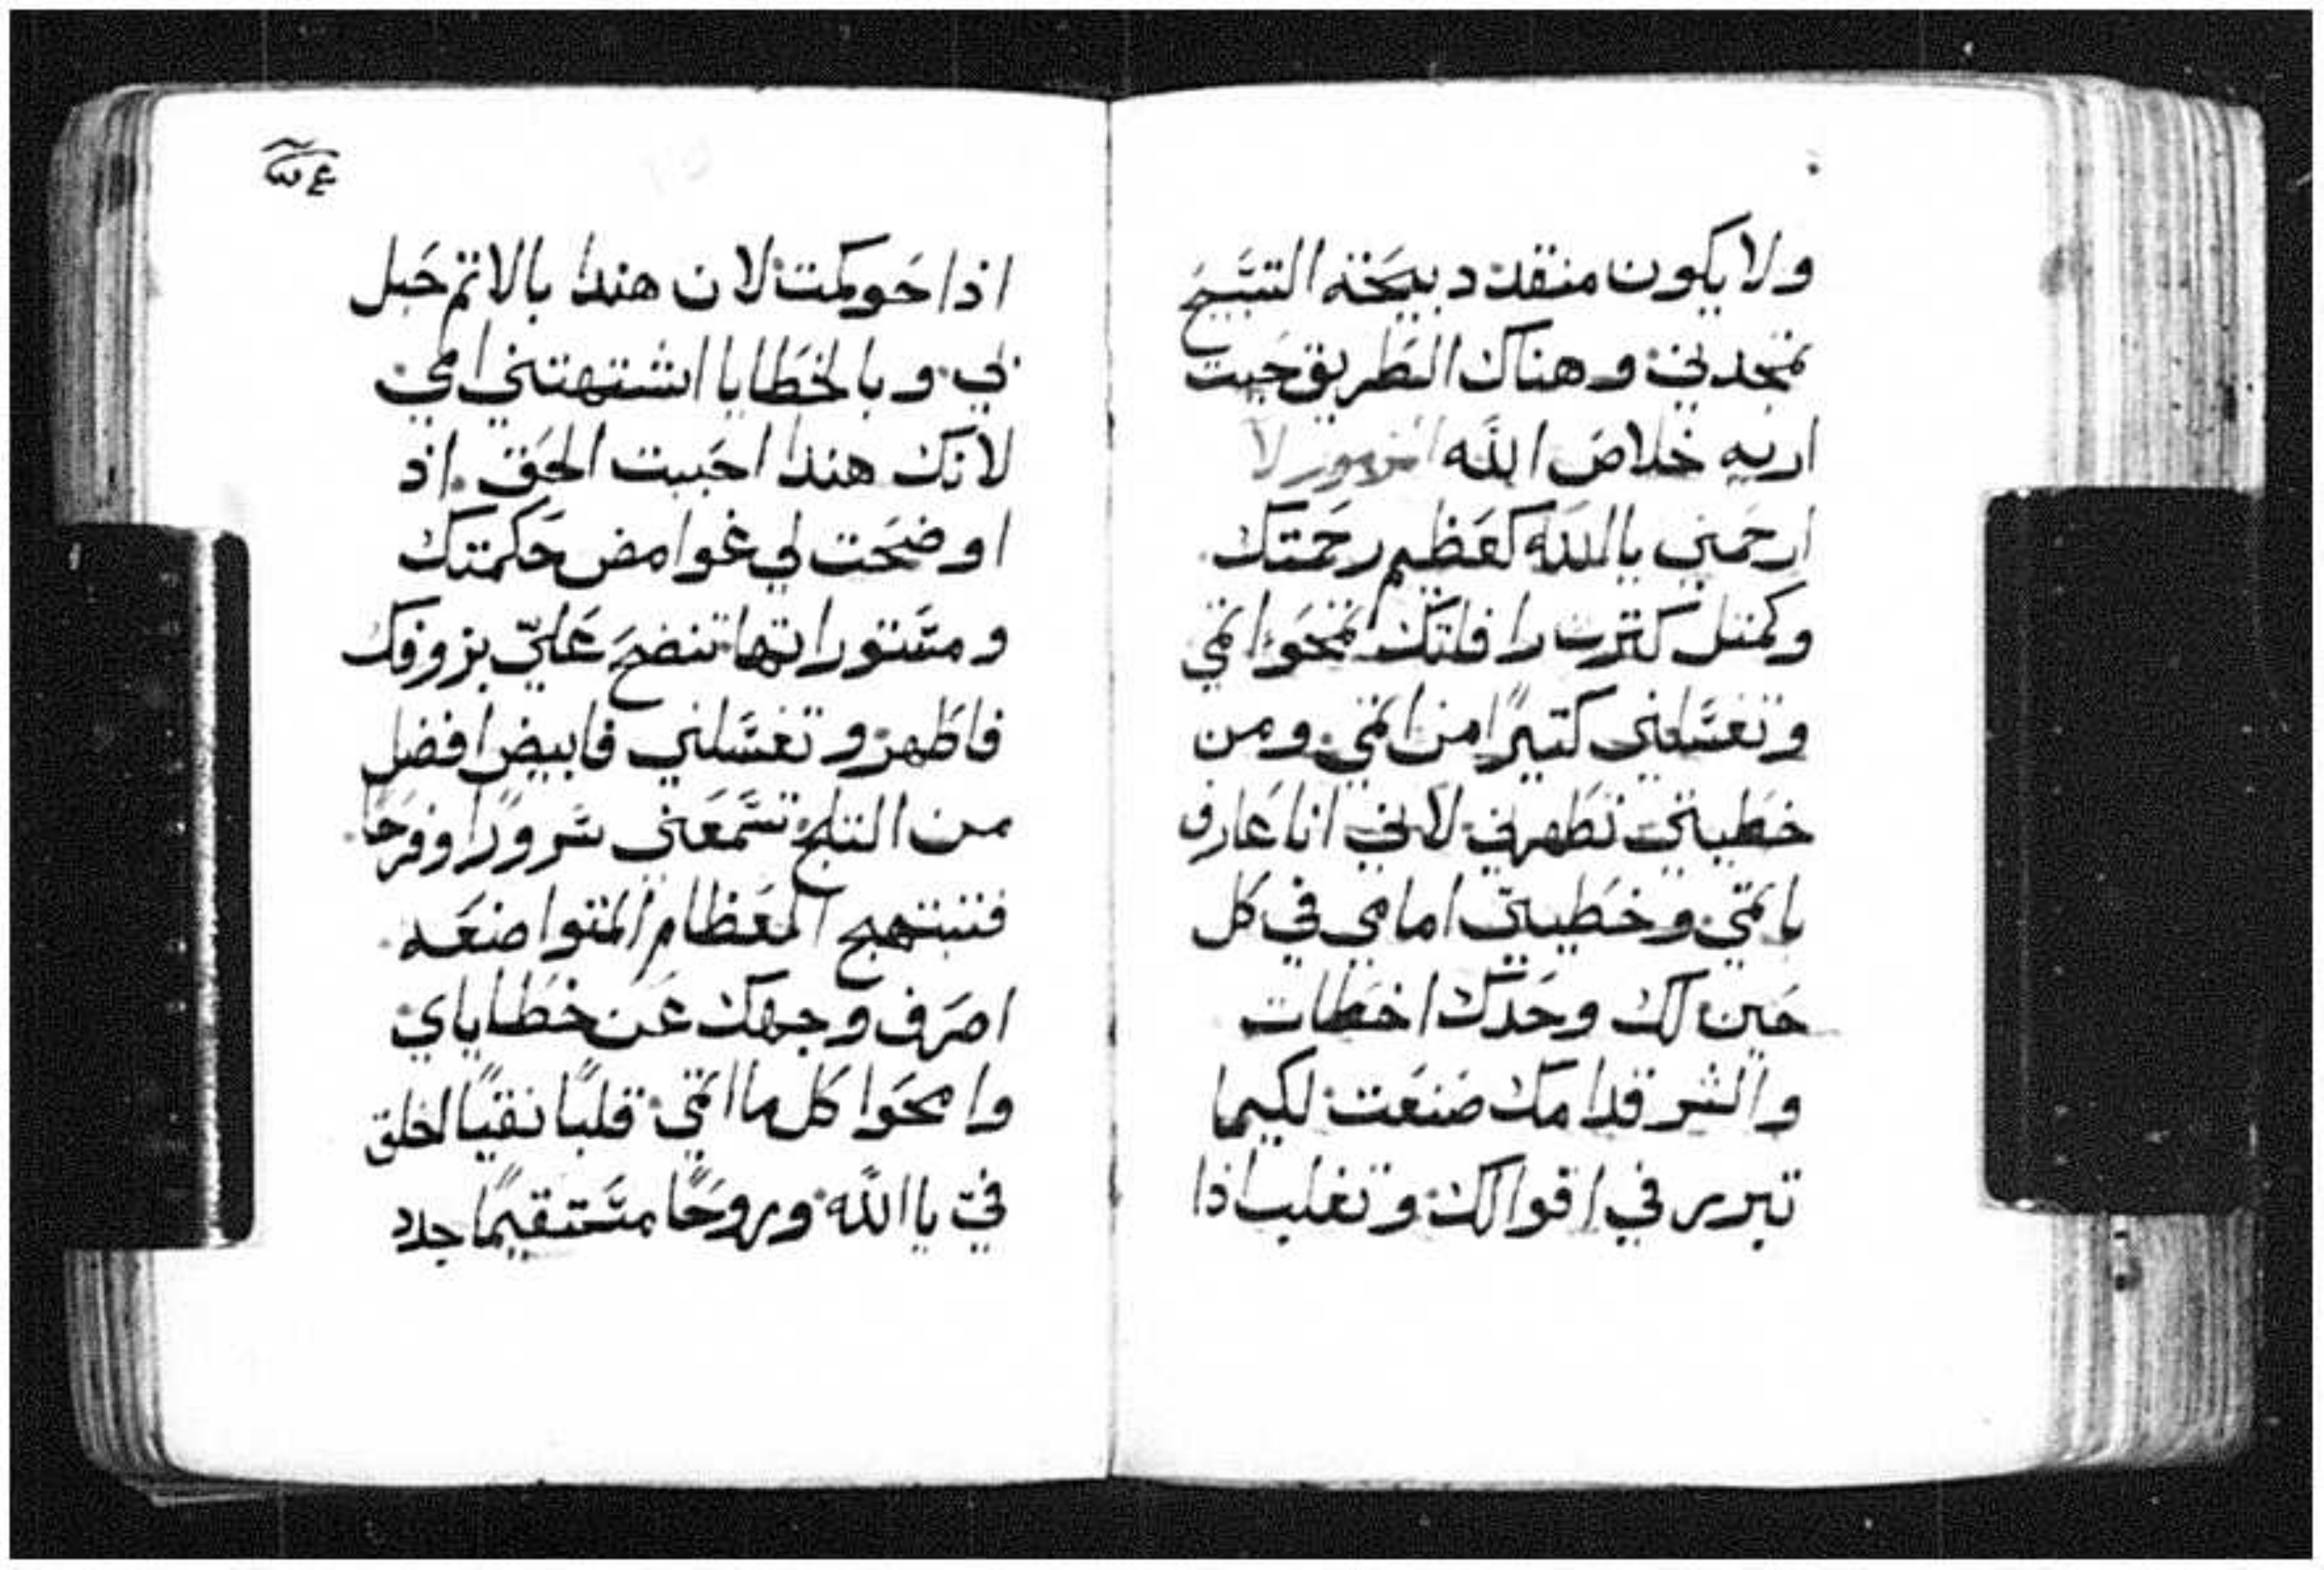 ولا يكون منقد دبيحة التسبيح
تمجدني وهناك الطريق حيت
اريه خلاص الله المزمور لا
ارحمني يا الله كعظيم رحمتك
وكمتل كترت رافاتك تمحوا اتمي
وتغسلني كتيرًا من اتمي ومن
خطيتي تطهرني لاني انا عارف
باتمي وخطيتي امامي في كل
حين لك وحدك اخطات
والشر قدامك صنعت لكيما
تبرر في اقوالك وتغلب اذا
اذا حوكمت لان هندا بالاتم حبل
بي وبالخطايا اشتهتني امي
لانك هندا احببت الحق اذ
اوضحت لي غوامض حكمتك
ومستوراتها تنضح عليّ بزوفك
فاطهر وتغسلني فابيض افضل
من التلج تسمعني سرورًا وفرحًا
فتبتهج العظام المتواضعه
اصرف وجهك عن خطاياي
وامحوا كل ما اتمي قلبًا نقيًا اخلق
فيّ يا الله وروحًا مستقيمًا جدد